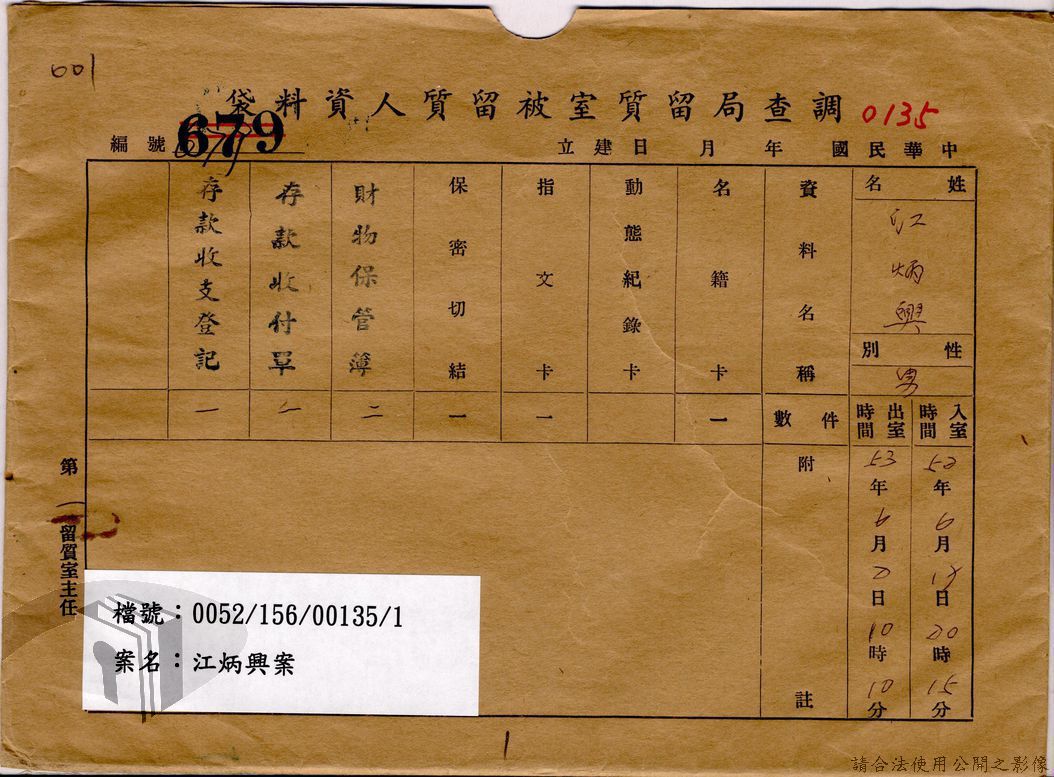 001
調查局留質室被留質人資料袋
0135
編號
679
中華民國 年 月 日建立
姓名
江炳興
性別
男
入室時間
52年6月1日20時15分
出室時間
53年6月2日10時10分
資料名稱
名籍卡
動態紀錄卡
指文卡
保密切結
財物保管簿
存款收付單
存款收支登記
件數
一
一
一
二
一
一
附註
第一留質室主任
檔號：0052/156/00135/1
案名：江炳興案
1
請合法使用公開之影像